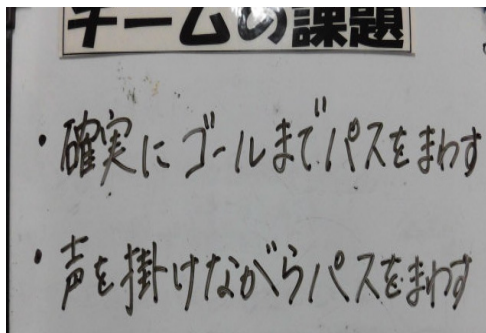 チームの課題
・確実にゴールまでパスをまわす
・声を掛けながらパスをまわす